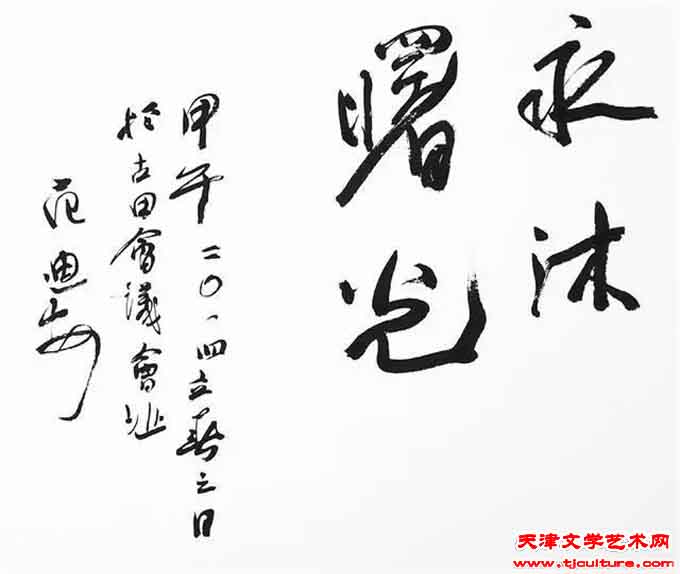 永沐
曙光
甲午二〇一四立春之日
於古田會議會址
范迪安
天津文学艺术网
www.tjculture.com